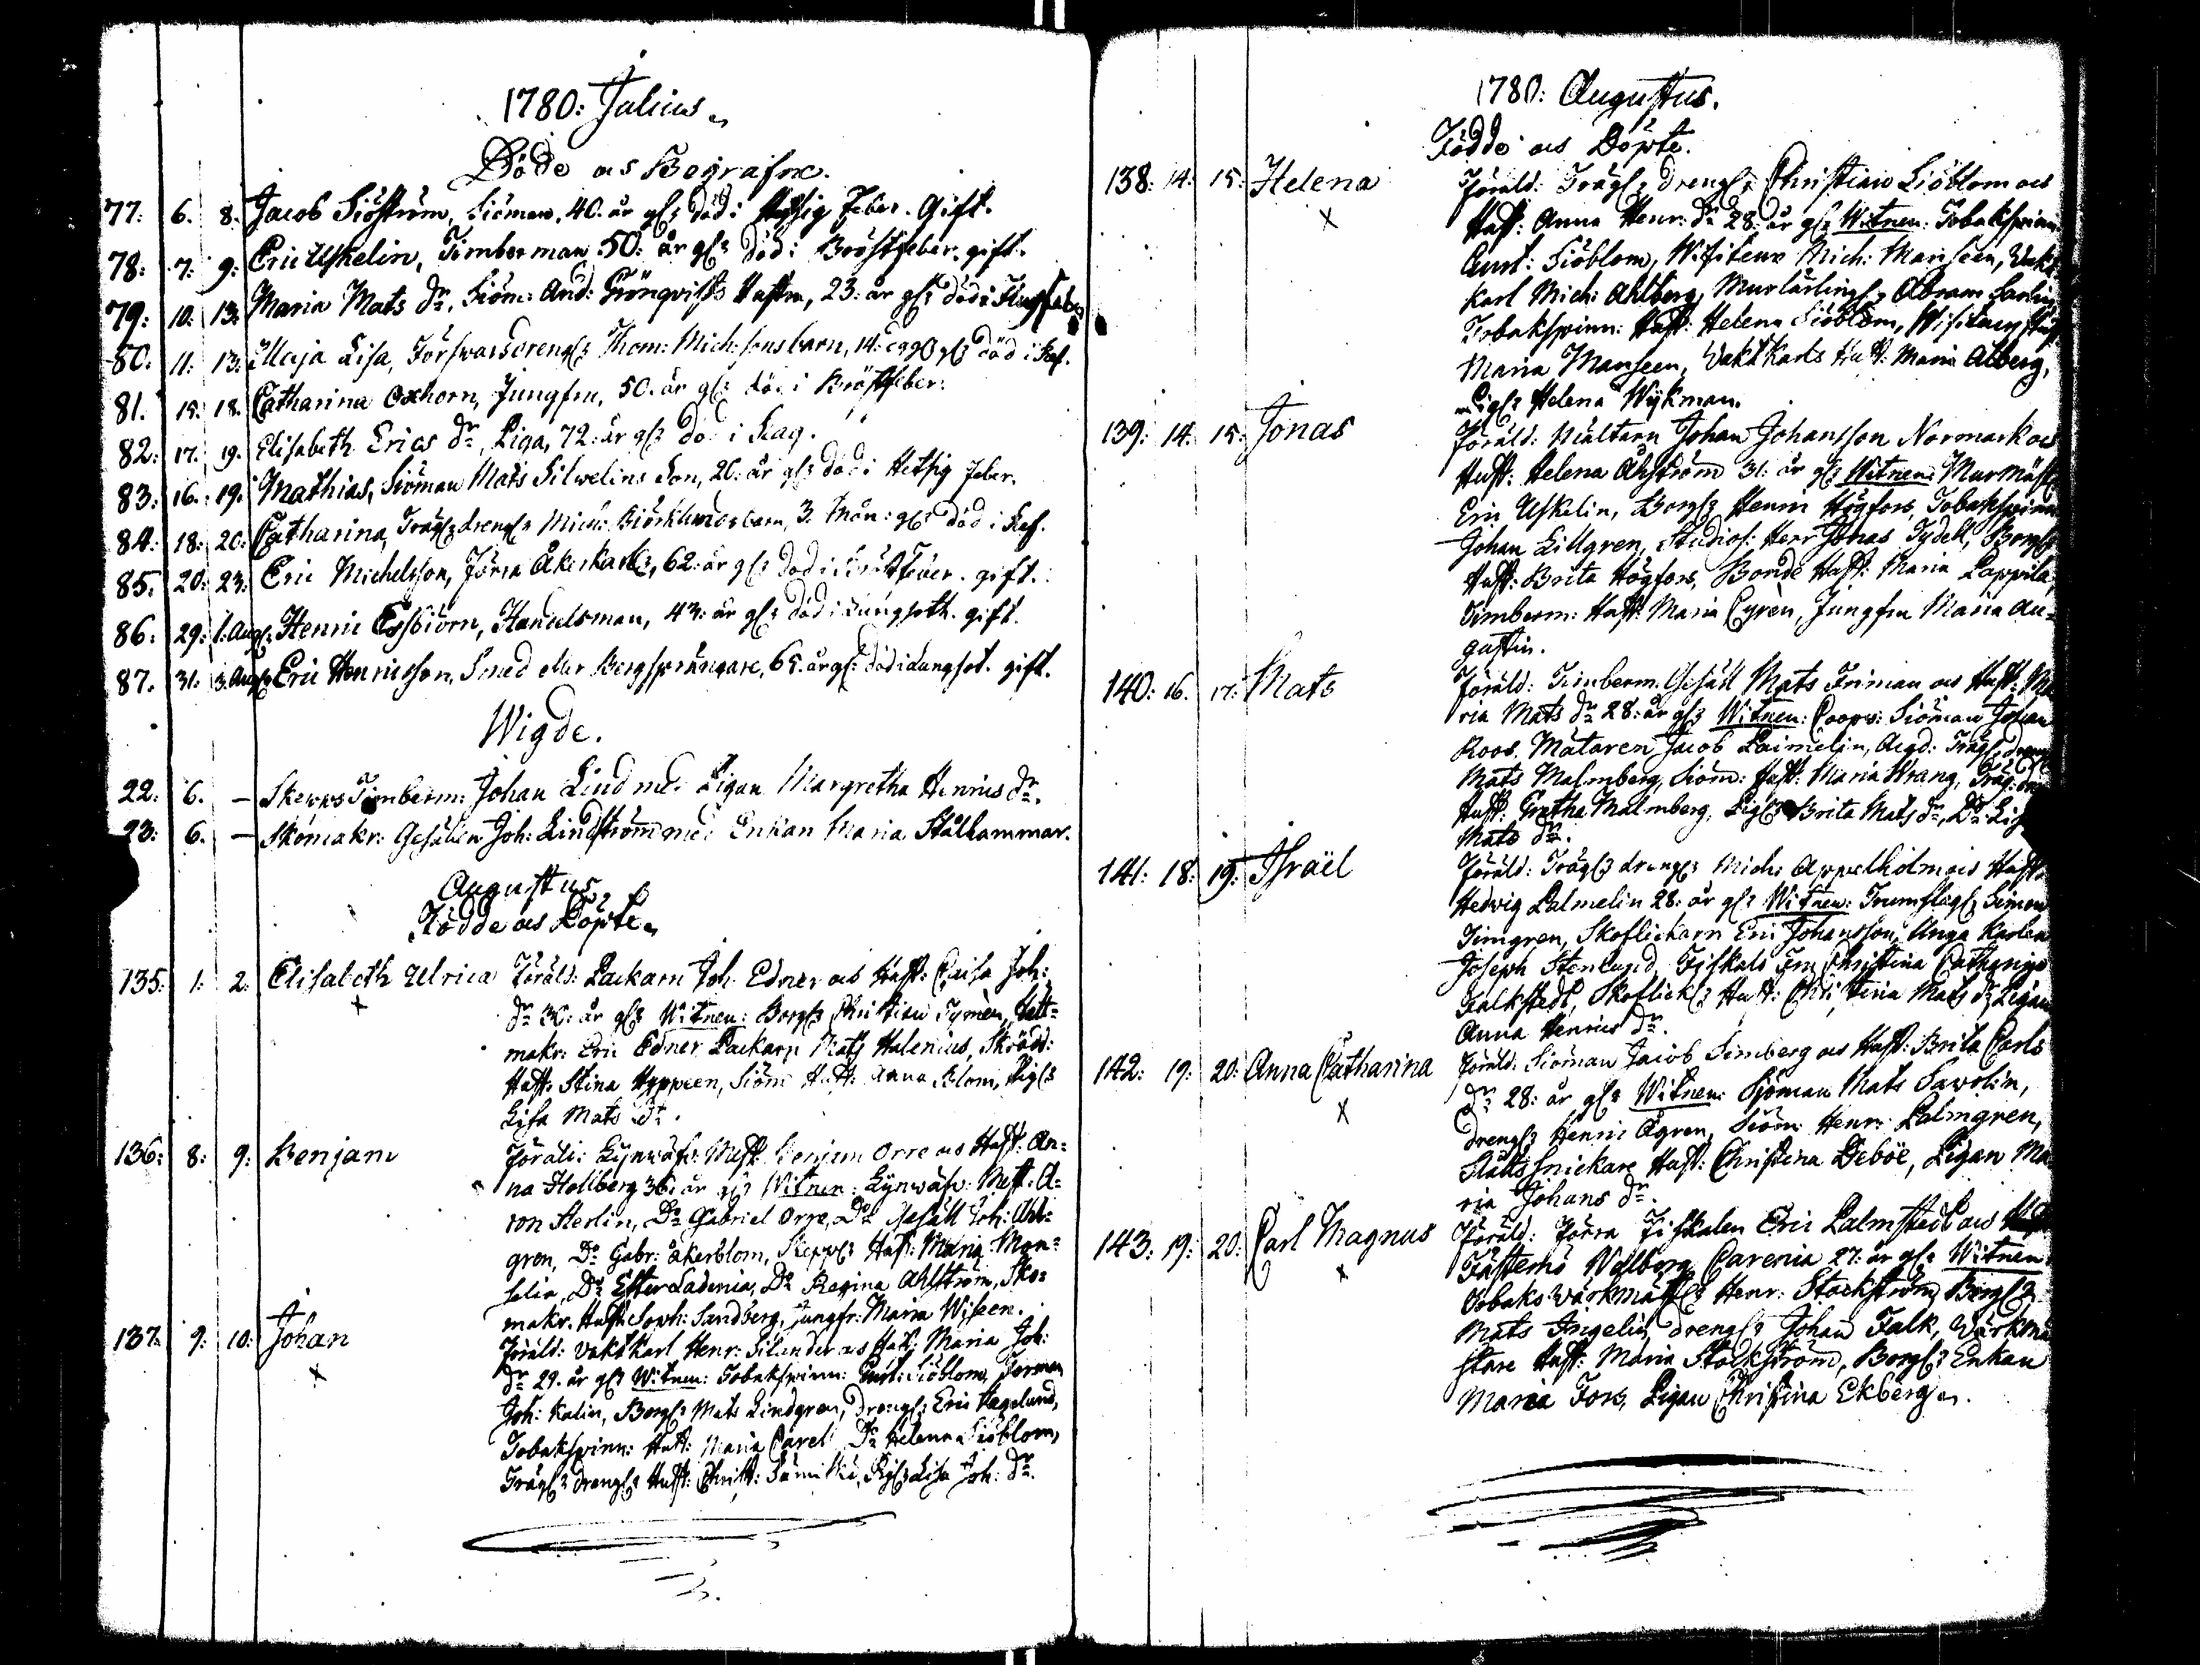 1780: Julius.
Döde och Begrafne.
77: 6. 8. Jacob Siöström, Siöman, 40. år gl: död i Hetsig Feber. Gift.
78: 7: 9: Eric Uskelin, Timberman 50: år gl: död i Bröstfeber. gift.
79: 10: 13: Maria Mats dr. Siöm: And: Grönqvists Hustru, 23: år gl: död i
80: 11: 13: Maja Lisa, Förswarsdrengs Thom: Mich:sons barn, 14: dagl gl: död i Kef.
81. 15: 18. Catharina Oxhorn, Jungfru, 50. år gl: död i Bröstfeber:
82: 17: 19. Elisabeth Erics dr Piga, 72: år gl: död i
83: 16: 19: Mathias, Siöman Mats Silwelins Son, 20: år gl: död i Hetsig Feber.
84: 18: 20: Catharina, Trägl: drengs Mich: Björklunds barn, 3. Mån: gl: död i Kef.
85. 20: 23: Eric Michelsson, Förra Åkerkarl, 62: år gl: död i Bröstfeber. gift.
86: 29: 1. Aug: Henric Essbiörn, Handelsman, 43: år gl: död i Lungsoth. gift.
87. 31: 3. Aug: Eric Henricsson, Smed eller Bergsprängare, 65. år gl: död i Lungsot. gift.
Wigde.
22: 6. – Skepps Timberm: Johan Lind med Pigan Margretha Henrics dr.
23: 6. – Skomakr: Gesällen Joh: Lindström med Enkan Maria Stålhammar.
Augustus
Födde och Döpte.
135: 1: 2: Elisabeth Ulrica Föräld: Packarn Joh. Edner och Hust: Caisa Joh:
dr 30: år gl: Witnen: Borgl: Christian Tymèn, Hatt=
makr: Eric Edner Packarn Mats Halenius, Skrädd:
Hust: Stina Hyppeen, Siöm Hust: Anna Blom, Pigl:
Lisa Mats dr.
136: 8: 9: Benjam Föräld: Lijnwäfw: Mest: Benjam Orre och Hust: An=
na Hollberg 36: år gl: Witnen: Lijnwäfw: Mest: A=
ron Sterlin, Do Gabriel Orre, Do Gesäll Joh: Ahl=
gren, Do Gabr: Åkerblom, Skepps Hust: Maria Man=
selin, Do Ester Ladenia, Do Regina Ahlström, Sko=
makr. Hust: Soph: Sandberg, Jungfr: Maria Wiseen.
137: 9: 10: Johan Föräld: Vaktkarl Henr: Silander och Hust: Maria Joh:
dr 29. år gl: Witnen: Tobakspinn: Gust: Siöblom, Forman
Joh: Kalin, Borgl: Mats Lindgren, Drengl: Eric Hagelund,
Tobakspinn: Hust: Maria Carel Do Helena Siöblom,
Trägl: drengl: Hust: Christ: Pigl: Lisa Joh: dr.
1780: Augustus.
Födde och Döpte.
138: 14: 15: Helena Föräld: Trägl: drengl: Christian Siöblom och
Hust: Anna Henr: dr 28: år gl: Witnen: Tobakspinn
Gust: Siöblom, Wisiteur Mich: Manseen, Vakt
karl Mich: Ahlberg, Murlärlingl: Abram
Tobakspinn: Hust: Helena Siöblom, Wisiteurs Hust
Maria Manseen, Vaktkarls Hust: Maria Alberg,
Pigl: Helena Wykman.
139: 14: 15: Jonas Föräld: Mältarn Johan Johansson Normark och
Hust: Helena Åhström 31: år gl: Witnen: Murmäst
Eric Uskelin, Borgl: Henric Högfors, Tobakspinn
Johan Lillgren, Studios: Herr Jonas Tydell, Borgl:
Hust: Brita Högfors, Bonde Hust: Maria Lappila,
Timberm: Hust: Maria Cyrèn, Jungfru Maria Au=
gustin.
140: 16. 17: Mats Föräld: Timberm: Gesäll Mats Friman och Hust: Ma
ria Mats dr 28: år gl: Witnen: Coopv: Siöman Johan
Roos, Mätaren Jacob Palmelin, Trägl: dreng
Mats Malmberg, Siöm: Hust: Maria Wrang, Träg: dreng
Hust: Gretha Malmberg, Pigl: Brita Mats dr, Do
Mats dr.
141: 18: 19: Israël Föräld: Trägl: drengl: Mich: Appelholm och Hust:
Hedwig Palmelin 28: år gl: Witnen: Trumslagl: Simon
Timgren, Skoflickarn Eric Johansson, Unga Karlen
Joseph Stenlund, Fiskals Fru Christina Catharina
Falkstedt, Skoflickl: Hust: Christina Mats dr, Pigan
Anna Henrics dr.
142: 19: 20: Anna Catharina Föräld: Siöman Jacob Simberg och Hust: Brita Carls
dr 28: år gl: Witnen: Sjöman Mats Sawolin,
drengl: Henric Ågren, Siöm: Henr: Palmgren,
Slåttssnickare Hust: Christina Deböe, Pigan Ma
ria Johans dr.
143: 19: 20: Carl Magnus Föräld: Förra Fiskalen Eric Palmstedt och
Fästemö Walborg Carenia 27: år gl: Witnen
Tobaks Wärkmäst: Henr: Stockström, Borgl:
Mats Ingelin, drengl: Johan Falk, Wärkmä
stare Hust: Maria Stockström, Borgl: Enkan
Maria Fors, Pigan Christina Ekberg.